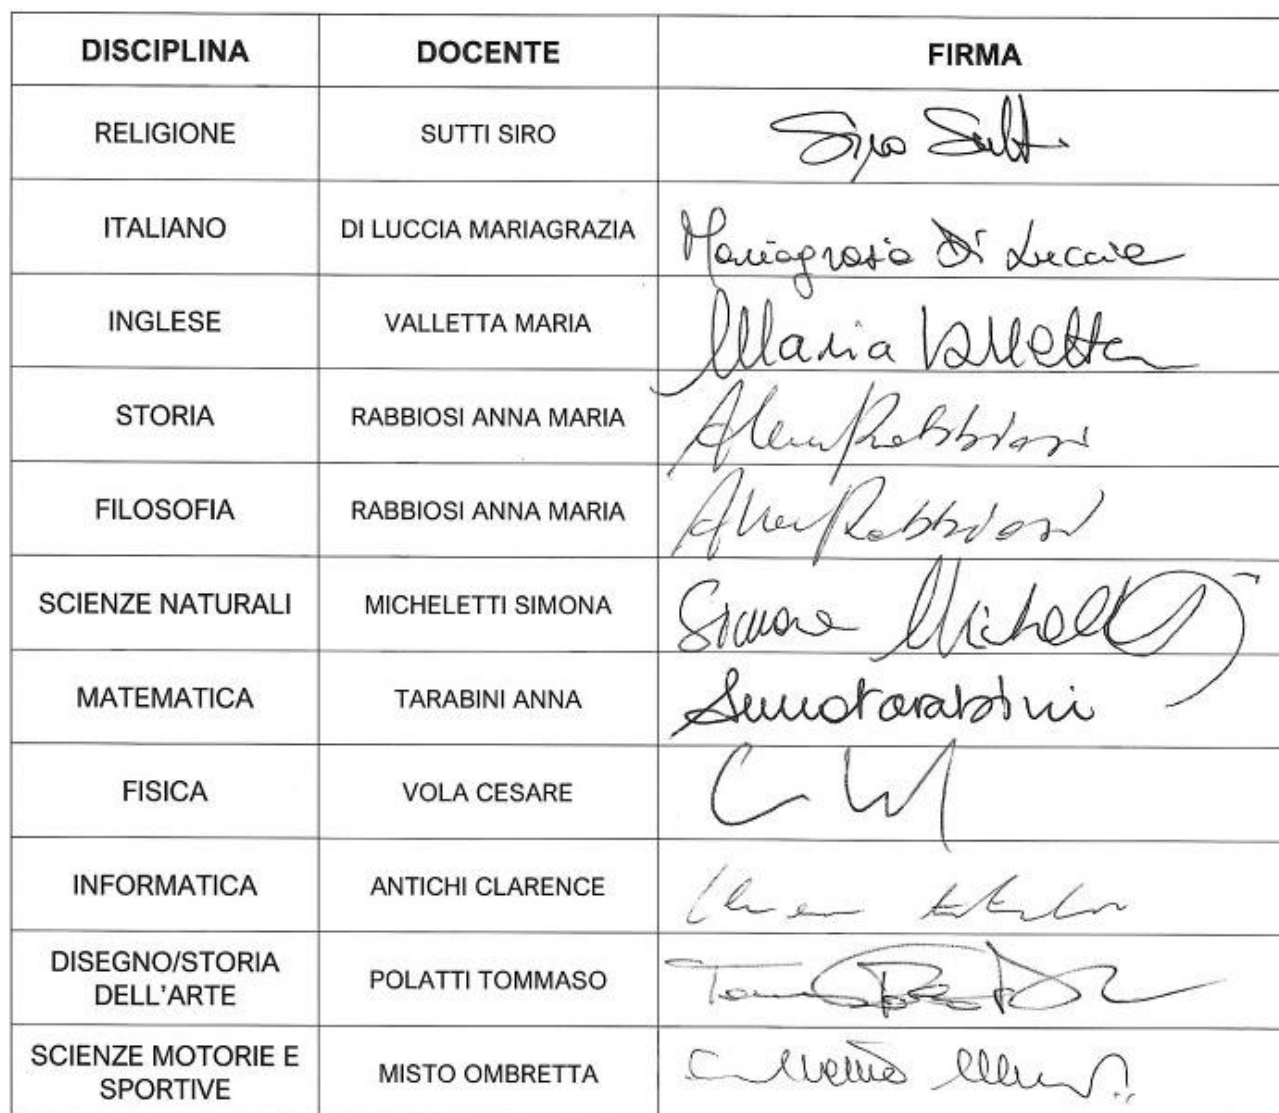 DISCIPLINA DOCENTE FIRMA
RELIGIONE SUTTI SIRO Siro Sutti
ITALIANO DI LUCCIA MARIAGRAZIA Mariagrazia Di Luccia
INGLESE VALLETTA MARIA Maria Valletta
STORIA RABBIOSI ANNA MARIA Rabbiosi
FILOSOFIA RABBIOSI ANNA MARIA Rabbiosi
SCIENZE NATURALI MICHELETTI SIMONA Simona Micheletti
MATEMATICA TARABINI ANNA Anna Tarabini
FISICA VOLA CESARE
INFORMATICA ANTICHI CLARENCE
DISEGNO/STORIA
DELL'ARTE
POLATTI TOMMASO
SCIENZE MOTORIE E
SPORTIVE
MISTO OMBRETTA